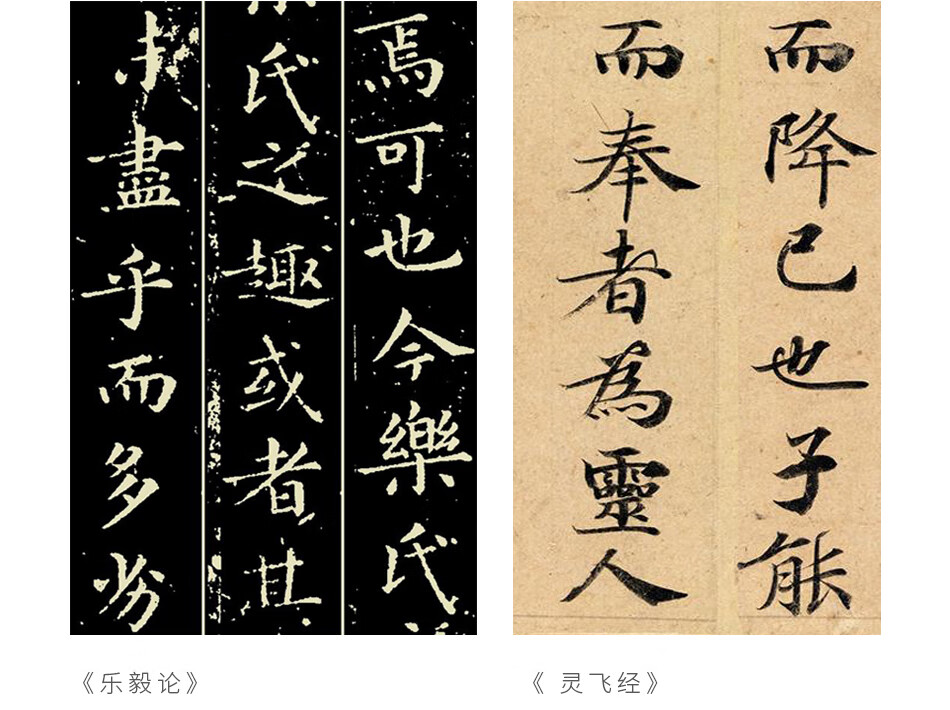 焉可也今樂氏
氏之趣或者其
未盡乎而多劣
而降已也子能
而奉者為靈人
《乐毅论》
《 灵飞经》